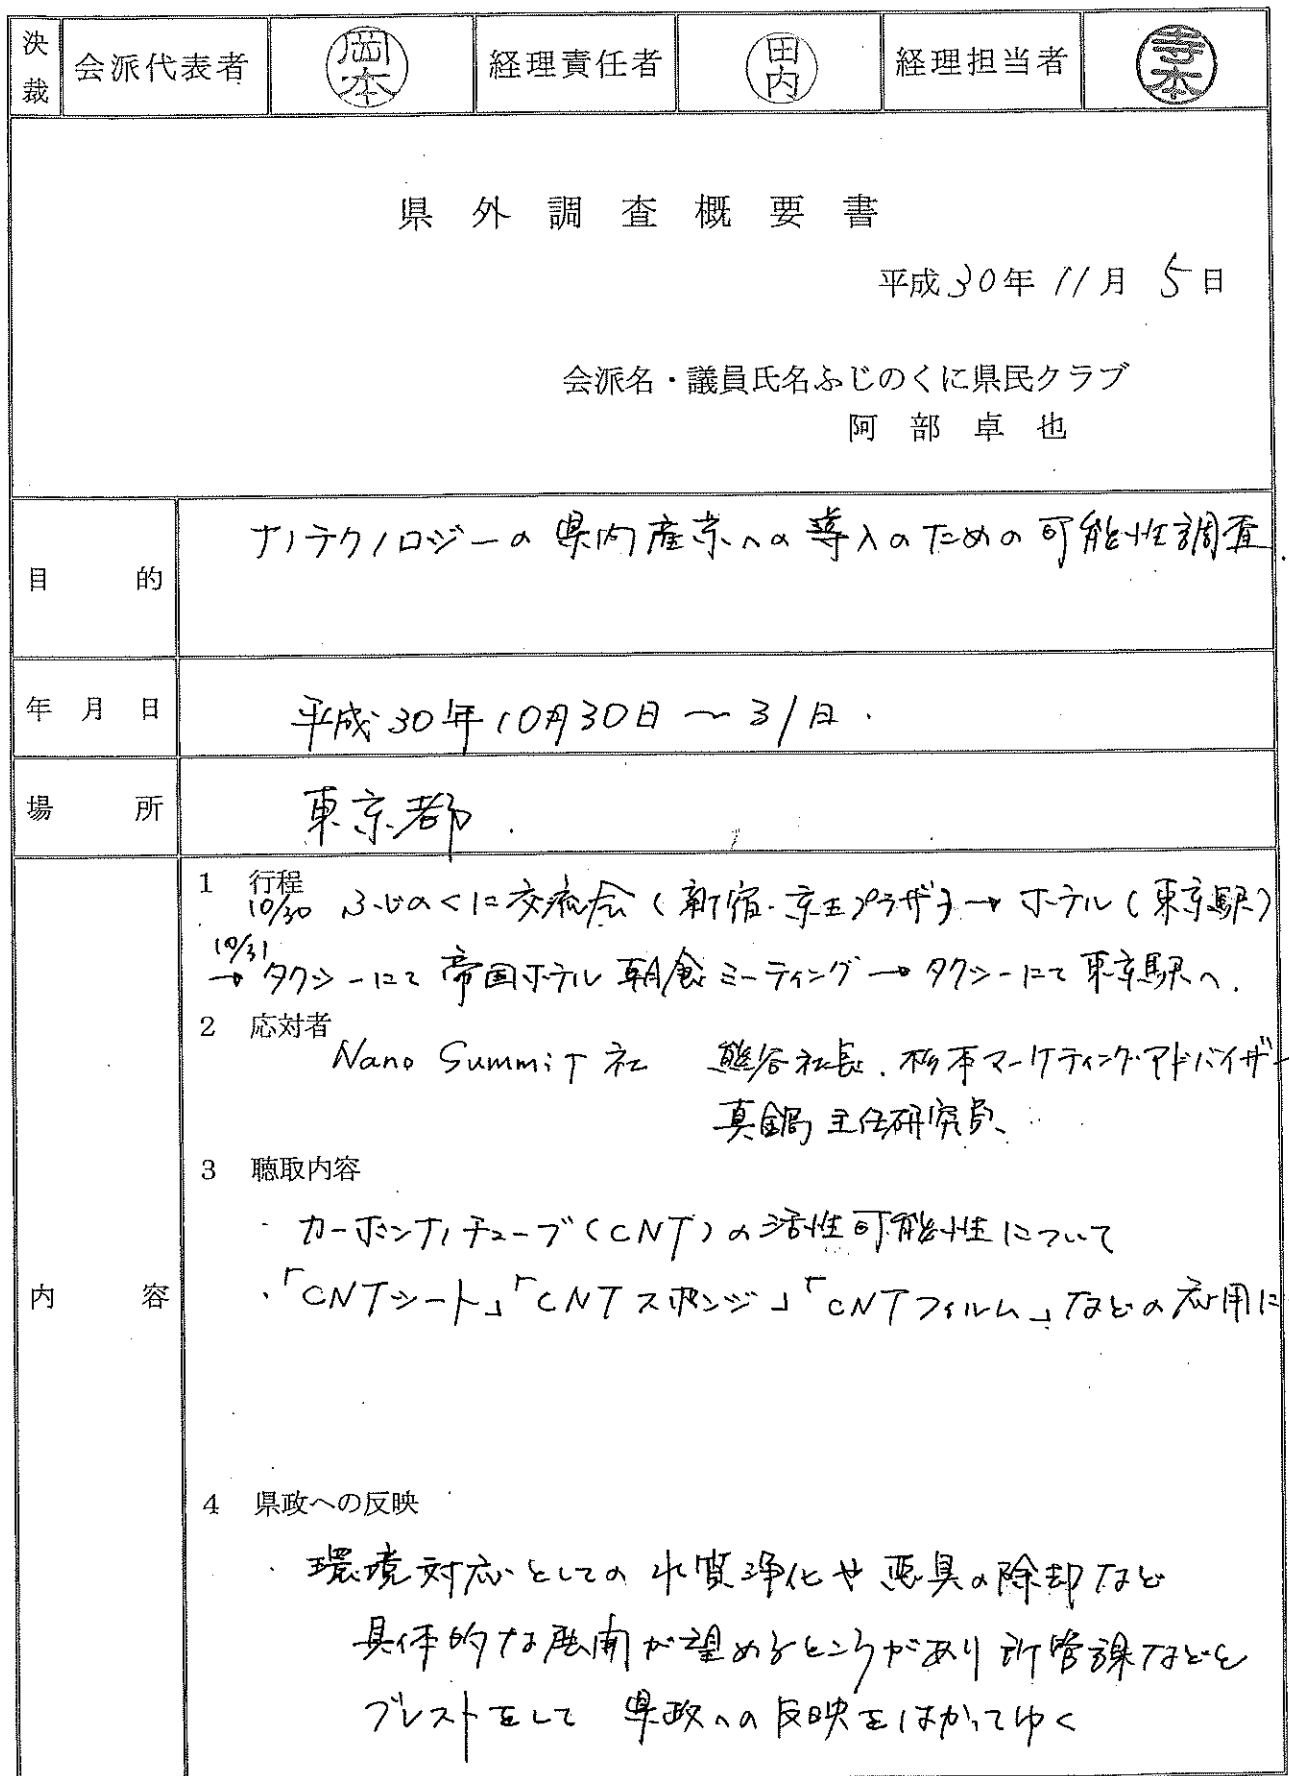 決裁 会派代表者 岡本 経理責任者 田内 経理担当者 寺本
県外調査概要書
平成30年11月5日
会派名・議員氏名ふじのくに県民クラブ
阿部卓也
目的 ナノテクノロジーの県内産業への導入のための可能性調査.
年月日 平成30年10月30日〜31日.
場所 東京都.
内容
1 行程
10/30 ふじのくに交流会(新宿・京王プラザ)→ホテル(東京駅)
10/31
→タクシーにて帝国ホテル朝食ミーティング→タクシーにて東京駅へ.
2 応対者
Nano Summit社 熊谷社長.杉本マーケティングアドバイザー
真鍋主任研究員、
3 聴取内容
・カーボンナノチューブ(CNT)の活性可能性について
・「CNTシート」「CNTスポンジ」「CNTフィルム」などの応用に
4 県政への反映
・環境対応としての水質浄化や悪臭の除却など
具体的な展開が望めるところがあり所管課などと
ブレストをして 県政への反映をはかってゆく